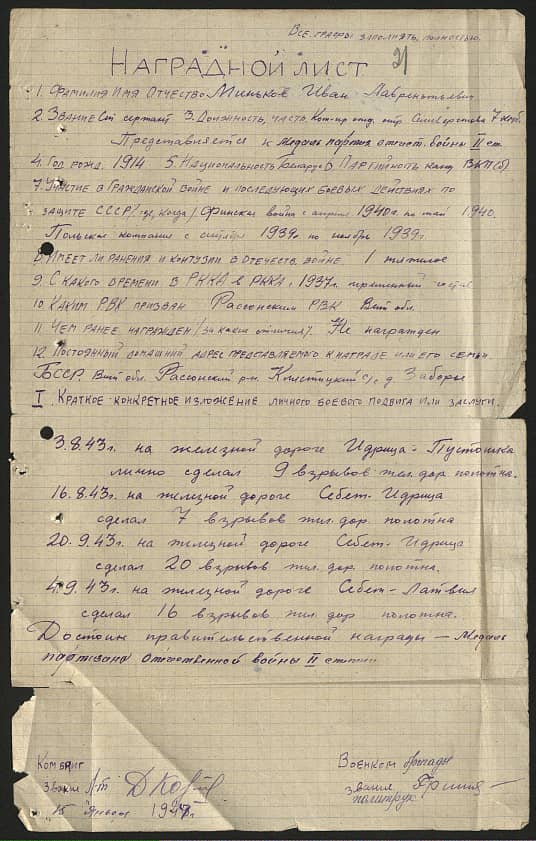 Все графы заполнять полностью.
21
НАГРАДНОЙ ЛИСТ
1. Фамилия Имя Отчество Миньков Иван Лаврентьевич
2. Звание Ст сержант 3. Должность, часть Ком-р отд. отр. Селиверстова 7
Представляется к медаль партиз отечест. войны II ст.
4. Год рожд. 1914 5. Национальность Беларус 6 Партийность канд ВКП(б)
7. Участие в Гражданской войне и последующих боевых действиях по
защите СССР/где, когда/ Финская война с апреля 1940г. по май 1940.
Польская компания с сентября 1939г. по ноябрь 1939г.
8. Имеет ли ранения и контузии в отечеств. войне 1 тяжелое
9. С какого времени в РККА в РККА с 1937г.
10. Каким РВК призван Рассонским РВК Вит обл.
11. Чем ранее награжден /за какие отличия/. Не награжден
12. Постоянный домашний адрес представляемого к награде или его семьи
БССР. Вит обл. Рассонский р-н. Клястицкий с/с д. Заборье
I. Краткое конкретное изложение личного боевого подвига или заслуги.
3.8.43г. на железной дороге Идрица-Пустошка
лично сделал 9 взрывов жел. дор. полотна.
16.8.43г. на железной дороге Себеж-Идрица
сделал 7 взрывов жел. дор. полотна
20.9.43г. на железной дороге Себеж-Идрица
сделал 20 взрывов жел. дор. полотна.
4.9.43г. на железной дороге Себеж-Латвия
сделал 16 взрывов жел. дор полотна.
Достоин правительственной награды — медаль
партизана отечественной войны II степени
Комбриг
Военком бригады
звание л-т
звание
политрук
15 января 1944г.